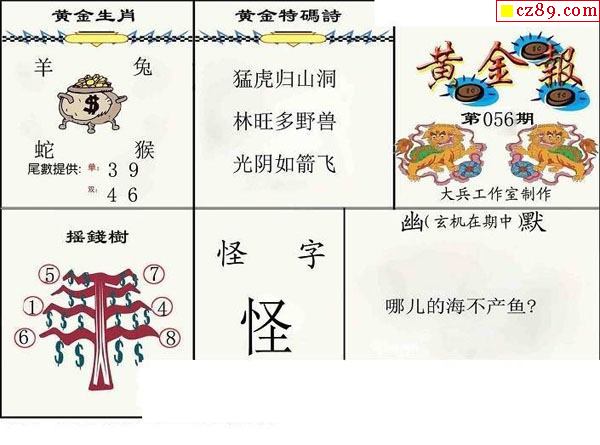 cz89.com
黄金生肖
羊 兔
$
蛇 猴
尾數提供: 单: 3 9
双: 4 6
黄金特碼詩
猛虎归山洞
林旺多野兽
光阴如箭飞
黄金報
第056期
大兵工作室制作
摇錢樹
5 7
1 4
6 8
$ $ $ $
$ $ $ $
怪 字
怪
幽(玄机在期中)默
哪儿的海不产鱼?